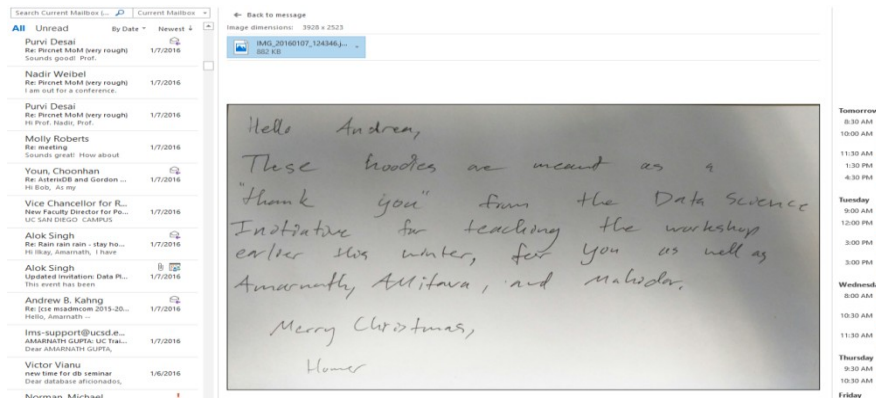 Search Current Mailbox (...
Current Mailbox
All Unread By Date Newest ↓
Purvi Desai
Re: Pircnet MoM (very rough) 1/7/2016
Sounds good! Prof.
Nadir Weibel
Re: Pircnet MoM (very rough) 1/7/2016
I am out for a conference.
Purvi Desai
Re: Pircnet MoM (very rough) 1/7/2016
Hi Prof. Nadir, Prof.
Molly Roberts
Re: meeting 1/7/2016
Sounds great! How about
Youn, Choonhan
Re: AsterixDB and Gordon ... 1/7/2016
Hi Bob, As my
Vice Chancellor for R...
New Faculty Director for Po... 1/7/2016
UC SAN DIEGO CAMPUS
Alok Singh
Re: Rain rain rain - stay ho... 1/7/2016
Hi Ilkay, Amarnath, I have
Alok Singh
Updated invitation: Data Pl... 1/7/2016
This event has been
Andrew B. Kahng
Re: [cse msadmcom 2015-20... 1/7/2016
Hello, Amarnath --
lms-support@ucsd.e...
AMARNATH GUPTA: UC Trai... 1/7/2016
Dear AMARNATH GUPTA,
Victor Vianu
new time for db seminar 1/6/2016
Dear database aficionados,
Norman, Michael
Back to message
Image dimensions: 3928 x 2523
IMG_20160107_124346.j...
662 KB
Hello Andrea,
These hoodies are meant as a
"thank you" from the Data Science
Initiative for teaching the workshop
earlier this winter, for you as well as
Amarnath, Amitava, and Mahidar.
Merry Christmas,
Homer
Tomorrow
8:30 AM
10:00 AM
11:30 AM
1:30 PM
4:30 PM
Tuesday
9:00 AM
12:00 PM
3:00 PM
3:00 PM
Wednesda
8:00 AM
10:30 AM
11:30 AM
Thursday
9:30 AM
10:30 AM
Friday